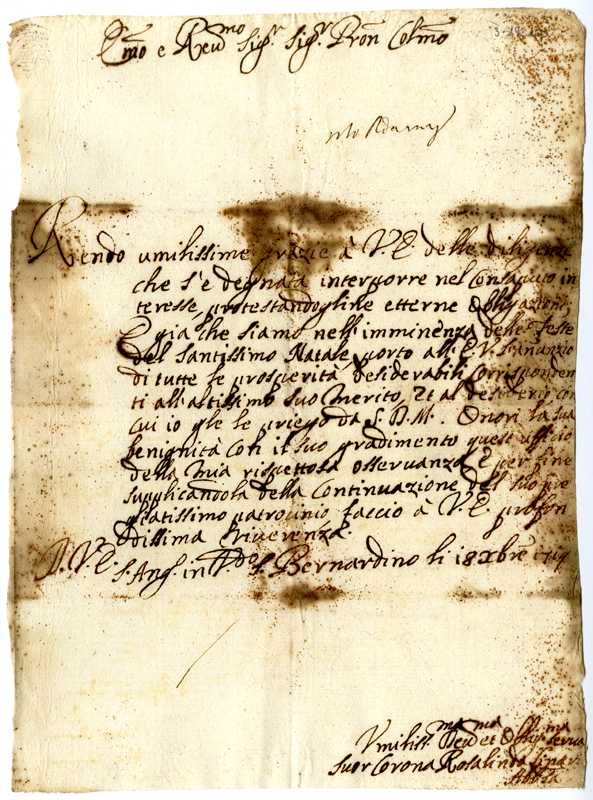 E.mo e Reu.mo Sig.r Sig.r Pron Colmo
Rendo umilissime grazie à V.E. delle diligenze
che s'è degnata interporre nel Consaputo in
teresse, protestandogline etterne obligazioni;
E già che siamo nell'imminenza delle Feste
del Santissimo Natale porto all'E.V. l'anunzio
di tutte le prosperità desiderabili corrisponden
ti all'altissimo suo Merito, et al desiderio con
cui io gle le priego da S.D.M. Onori la sua
benignità con il suo gradimento quest'ufficio
della mia rispettosa osservanza, E per fine
supplicandola della Continuazione del suo pre
giatissimo patrocinio faccio à V.E. profon
dissima riverenza.
D.V.E.
S. Ang. in S. Bernardino li 18 Xbre
Vmiliss.ma Deu.ma et Obb.ma Serua
Suor Corona Rosalinda
Abb.a